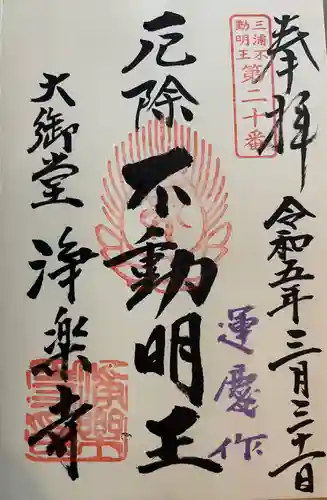 奉拝
三浦不
動明王
第二十番
令和五年三月三十一日
厄除
不動明王
運慶作
大御堂
浄楽寺